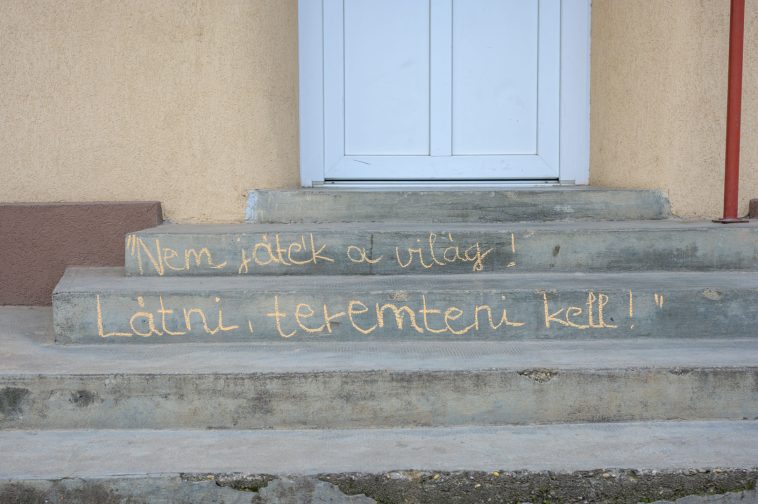 "Nem játék a világ!
Látni, teremteni kell!"